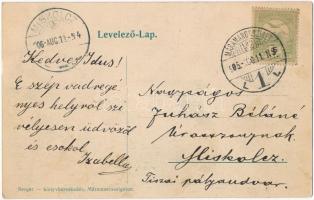 MISKOLCZ
906 AUG. 11
Levelező-Lap.
MÁRAMAROS
Kedves Idus!
E szép vadregé-
nyes helyről szi-
vélyesen üdvözöl
és csókol
Izabella
Nagyságos
Juhász Béláné
Úrasszonynak
Miskolcz.
Tiszai pályaudvar.
Berger — könyvkereskedés, Máramarossziget.